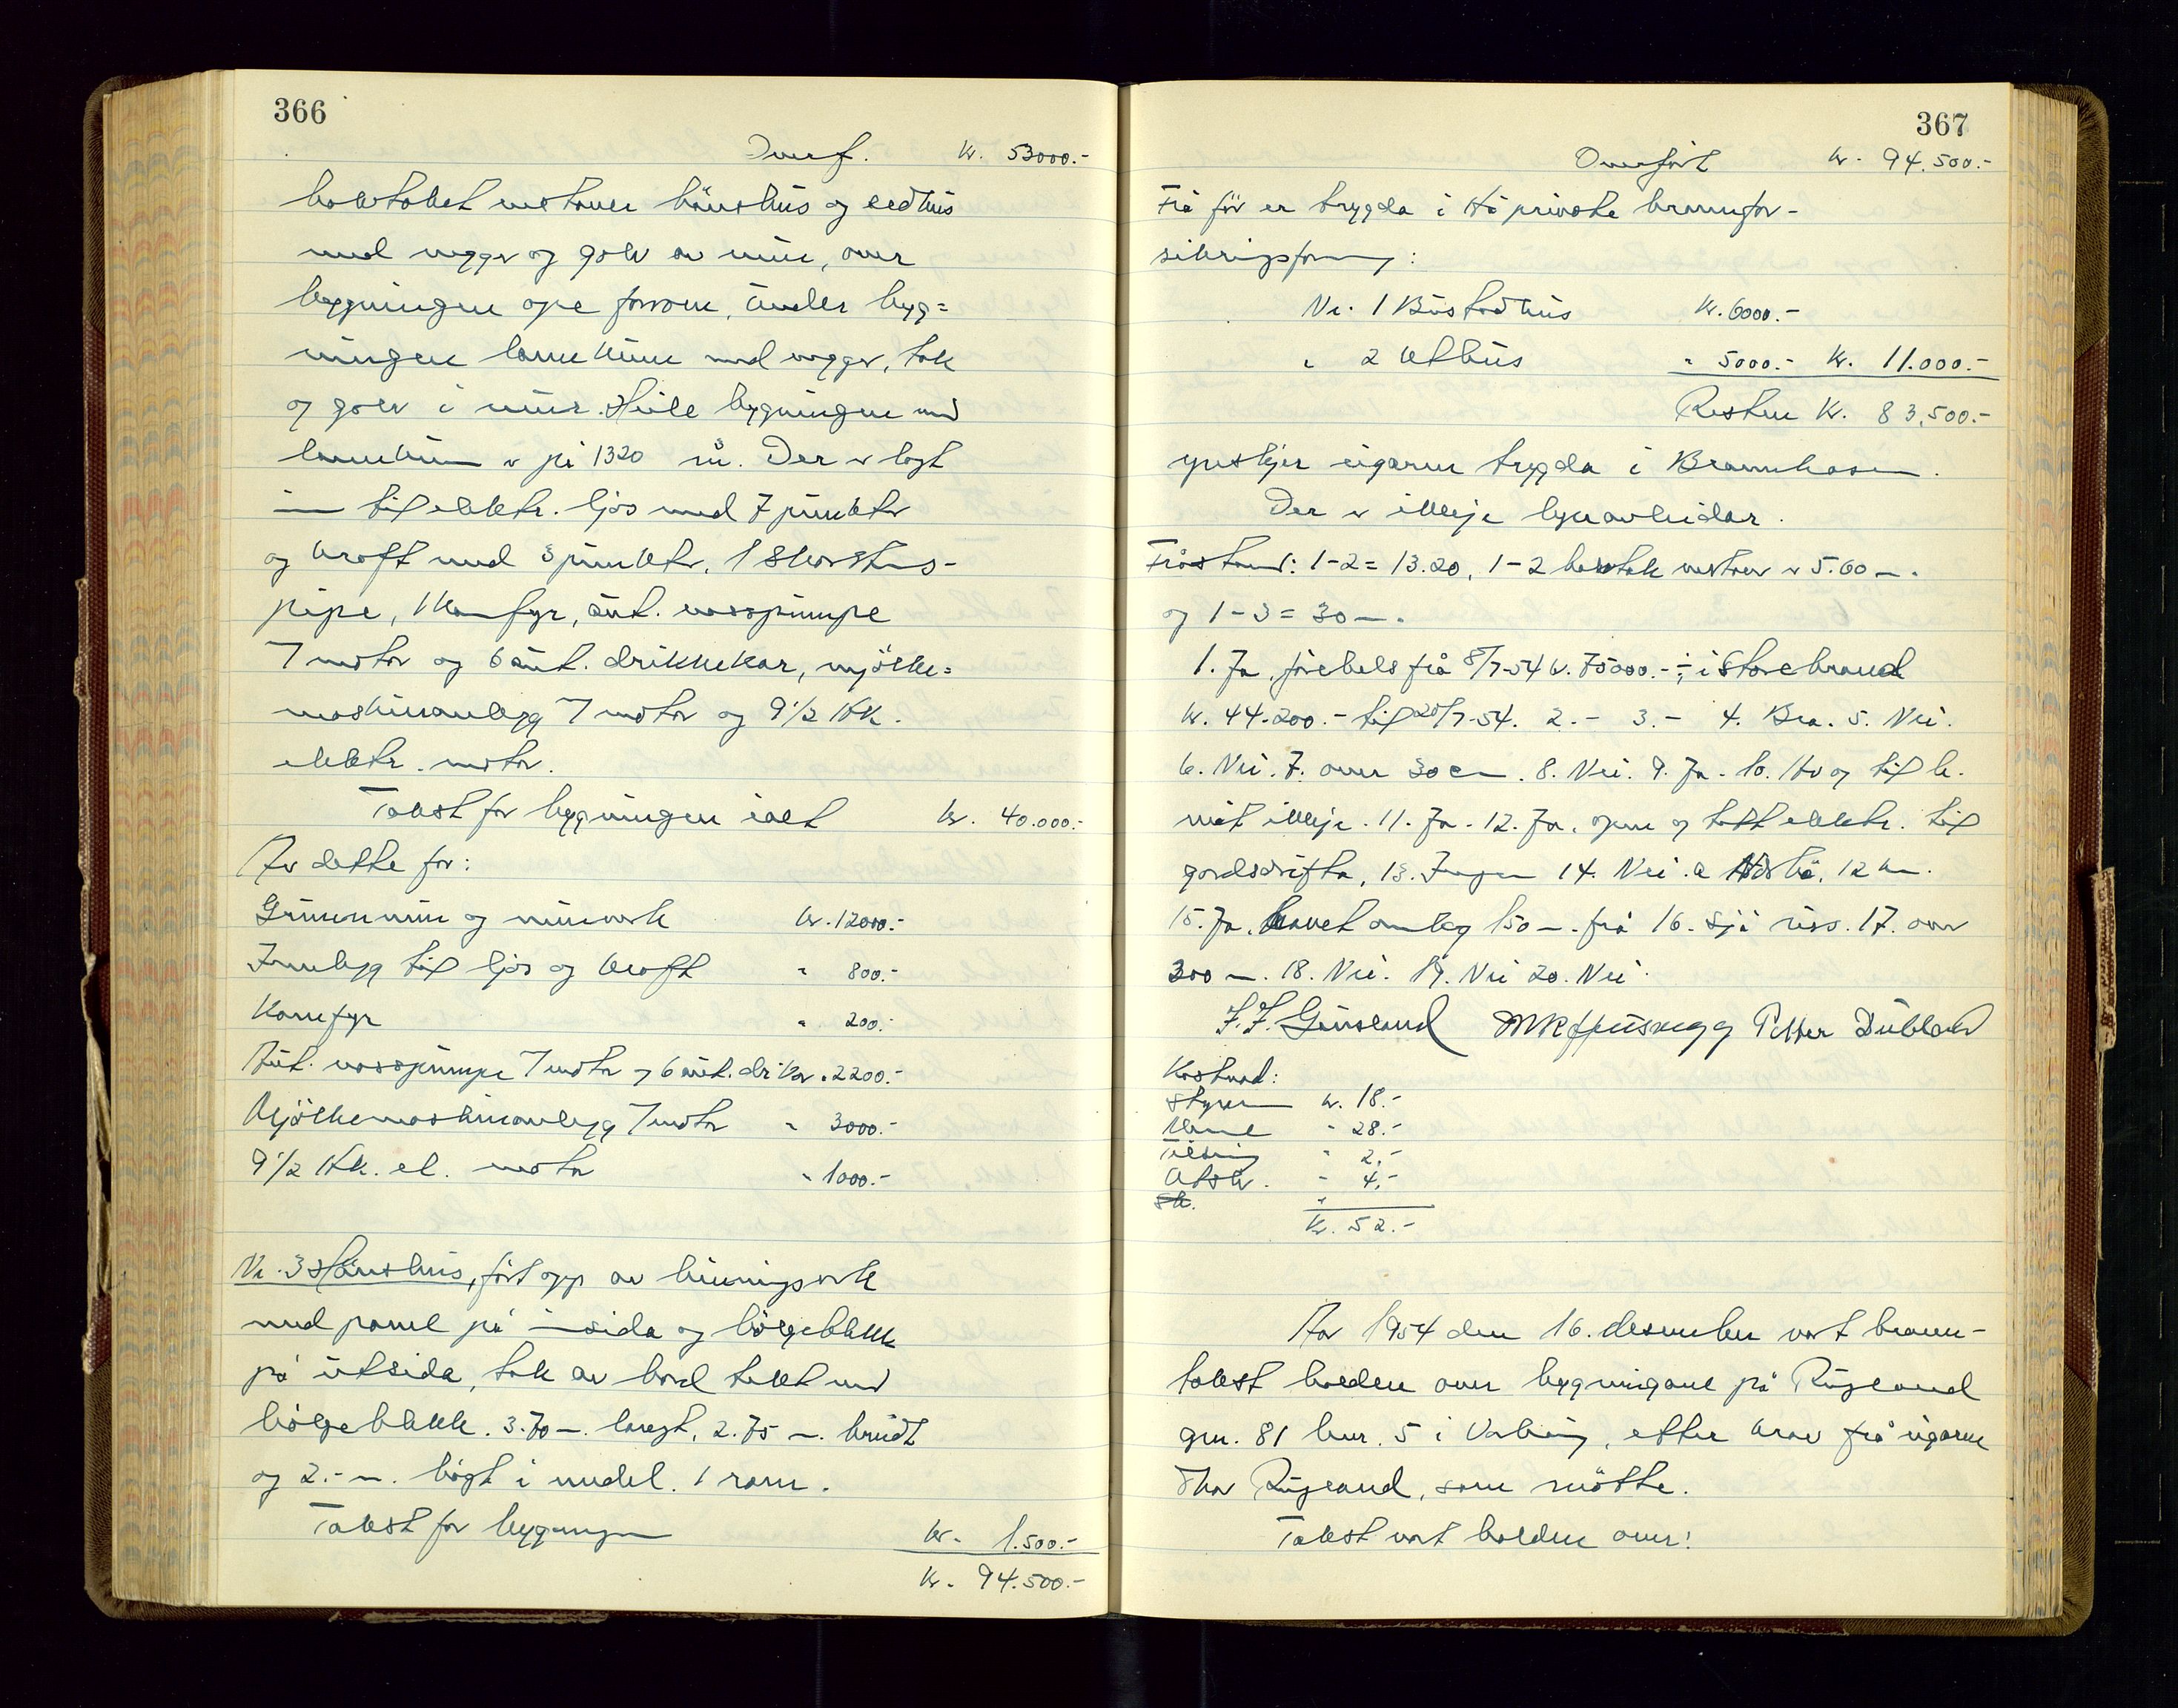 366
Overf. Kr. 53000.-
halvtaket vestover hönshus og eldhus
med vegger og golv av mur, over
bygningen ope forrom, under byg=
ningen landkum med vegger, tak
og golv i mur. Heile bygningen med
landkum er på 1320 m³. Der er lagt
inn til elektr. ljos med 7 punkter
og kraft med 3 punkter, 1 skorstens-
pipe, 1 komfyr, aut. vasspumpe
7 motor og 6 aut. drikkekar, mjölke=
maskinanlegg 7 motor og 9 1/2 Hk.
elektr. motor.
Takst for bygningen ialt Kr. 40.000.-
Av dette for:
Grunnmur og murverk Kr. 12000.-
Innlegg til ljos og kraft " 800.-
Komfyr " 200.-
Aut. vasspumpe 7 motor og 6 aut. dr.kar " 2200.-
Mjölkemaskinanlegg 7 motor " 3000.-
9 1/2 Hk. el. motor " 1000.-
Nr. 3 Hönshus, fört opp av bindingsverk
med panel på innsida og bölgeblekk
på utsida, tak av bord tekt med
bölgeblekk. 3.70 m. langt, 2.75 m. breidt
og 2.- m. högt i medel. 1 rom.
Takst for bygningen Kr. 1.500.-
Kr. 94.500.-
367
Overfört Kr. 94.500.-
Frå för er trygda i Hå private brannfor-
sikringsforening:
Nr. 1 Bustadhus Kr. 6000.-
" 2 Uthus " 5000.- Kr. 11.000.-
Resten Kr. 83.500.-
ynskjer eigaren trygda i Brannkassen.
Der er ikkje lyenavleidar.
Fråstand: 1-2 = 13.20, 1-2 halvtak vestover er 5.60 m.
og 1-3 = 30 m.
1. Ja, förebels frå 8/7-54 kr. 75000.- ÷ i Storebrand
kr. 44.200.- til 20/7-54. 2.- 3.- 4. Bra. 5. Nei.
6. Nei. 7. over 30 cm. 8. Nei. 9. Ja. 10. Hö og til h.
nåt ikkje. 11. Ja. 12. Ja, open og tatt elektr. til
gardsdrifta, 13. Ingen 14. Nei. a Närbö, 12 km.
15. Ja. havet omlag 150 m. frå 16. Sjå riss. 17. over
300 m. 18. Nei. 19. Nei 20. Nei.
J. J. Grusland Petter Dubland
Kostnad:
Styraren kr. 18.-
Menn " 28.-
Tilseing " 2.-
Utskr. " 4.-
Sk. "
Kr. 52.-
År 1954 den 16. desember vart brann-
takst halden over bygningane på Rugland
gnr. 81 bnr. 5 i Varhaug, etter krav frå eigaren
Thor Rugland, som mötte.
Takst vart halden over: